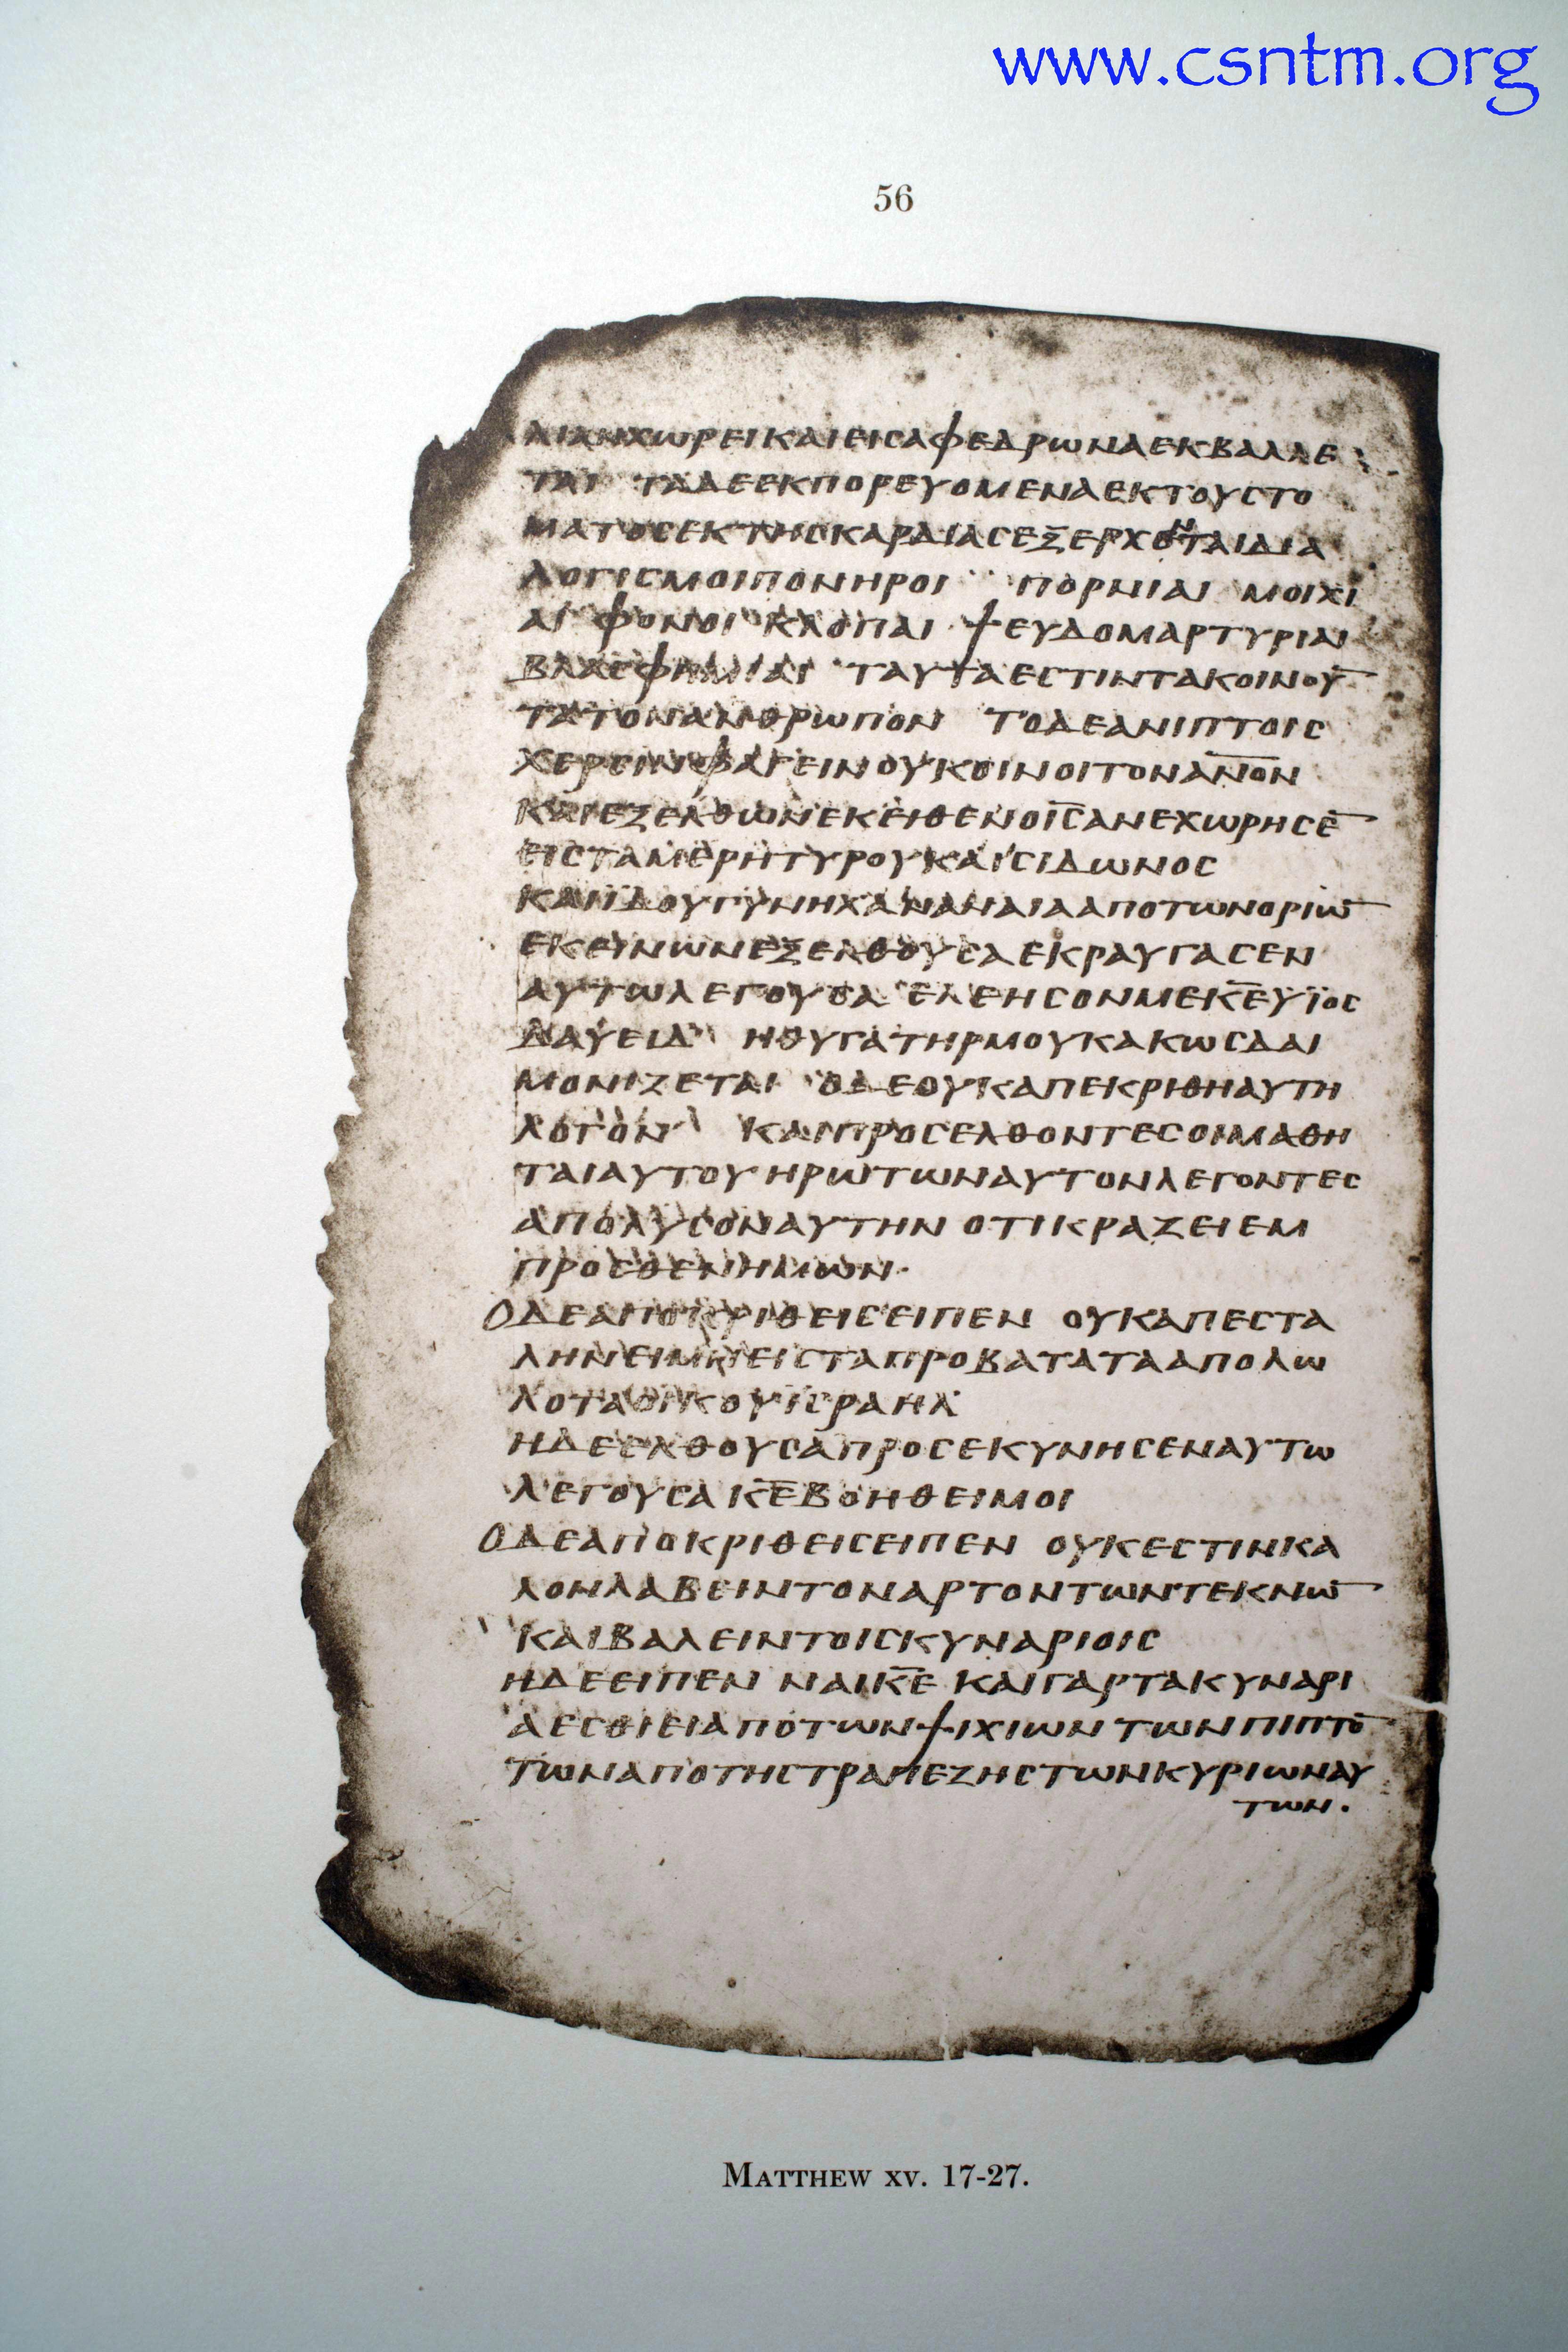 www.csntm.org
56
ΛΙΑΝΧΩΡΕΙΚΑΙΕΙCΑΦΕΔΡΩΝΑΕΚΒΑΛΛΕ
ΤΑΙ ΤΑΔΕΕΚΠΟΡΕΥΟΜΕΝΑΕΚΤΟΥCΤΟ
ΜΑΤΟCΕΚΤΗCΚΑΡΔΙΑCΕΞΕΡΧΟΝΤΑΙΔΙΑ
ΛΟΓΙCΜΟΙΠΟΝΗΡΟΙ ΠΟΡΝΙΑΙ ΜΟΙΧΙ
ΑΙ ΦΟΝΟΙ ΚΛΟΠΑΙ ΨΕΥΔΟΜΑΡΤΥΡΙΑΙ
ΒΛΑCΦΗΜΙΑΙ ΤΑΥΤΑΕCΤΙΝΤΑΚΟΙΝΟΥ̅
ΤΑΤΟΝΑΝΘΡΩΠΟΝ ΤΟΔΕΑΝΙΠΤΟΙC
ΧΕΡCΙΝΦΑΓΕΙΝΟΥΚΟΙΝΟΙΤΟΝΑ̅Ν̅Ο̅Ν̅
ΚΑΙΕΞΕΛΘΩΝΕΚΕΙΘΕΝΟΙ̅C̅ΑΝΕΧΩΡΗCΕ̅
ΕΙCΤΑΜΕΡΗΤΥΡΟΥΚΑΙCΙΔΩΝΟC
ΚΑΙΙΔΟΥΓΥΝΗΧΑΝΑΝΑΙΑΑΠΟΤΩΝΟΡΙΩ̅
ΕΚΕΙΝΩΝΕΞΕΛΘΟΥCΑΕΚΡΑΥΓΑCΕΝ
ΑΥΤΩΛΕΓΟΥCΑ ΕΛΕΗCΟΝΜΕΚ̅Ε̅ΥΪΟC
ΔΑΥΕΙΔ ΗΘΥΓΑΤΗΡΜΟΥΚΑΚΩCΔΑΙ
ΜΟΝΙΖΕΤΑΙ ΟΔΕΟΥΚΑΠΕΚΡΙΘΗΑΥΤΗ
ΛΟΓΟΝ ΚΑΙΠΡΟCΕΛΘΟΝΤΕCΟΙΜΑΘΗ
ΤΑΙΑΥΤΟΥΗΡΩΤΩΝΑΥΤΟΝΛΕΓΟΝΤΕC
ΑΠΟΛΥCΟΝΑΥΤΗΝ ΟΤΙΚΡΑΖΕΙΕΜ
ΠΡΟCΘΕΝΗΜΩΝ·
ΟΔΕΑΠΟΚΡΙΘΕΙCΕΙΠΕΝ ΟΥΚΑΠΕCΤΑ
ΛΗΝΕΙΜΗΕΙCΤΑΠΡΟΒΑΤΑΤΑΑΠΟΛΩ
ΛΟΤΑΟΙΚΟΥΙCΡΑΗΛ
ΗΔΕΕΛΘΟΥCΑΠΡΟCΕΚΥΝΗCΕΝΑΥΤΩ
ΛΕΓΟΥCΑΚ̅Ε̅ΒΟΗΘΕΙΜΟΙ
ΟΔΕΑΠΟΚΡΙΘΕΙCΕΙΠΕΝ ΟΥΚΕCΤΙΝΚΑ
ΛΟΝΛΑΒΕΙΝΤΟΝΑΡΤΟΝΤΩΝΤΕΚΝΩ̅
ΚΑΙΒΑΛΕΙΝΤΟΙCΚΥΝΑΡΙΟΙC
ΗΔΕΕΙΠΕΝ ΝΑΙΚ̅Ε̅ ΚΑΙΓΑΡΤΑΚΥΝΑΡΙ
ΑΕCΘΙΕΙΑΠΟΤΩΝΨΙΧΙΩΝΤΩΝΠΙΠΤΟ̅
ΤΩΝΑΠΟΤΗCΤΡΑΠΕΖΗCΤΩΝΚΥΡΙΩΝΑΥ
ΤΩΝ·
MATTHEW XV. 17-27.